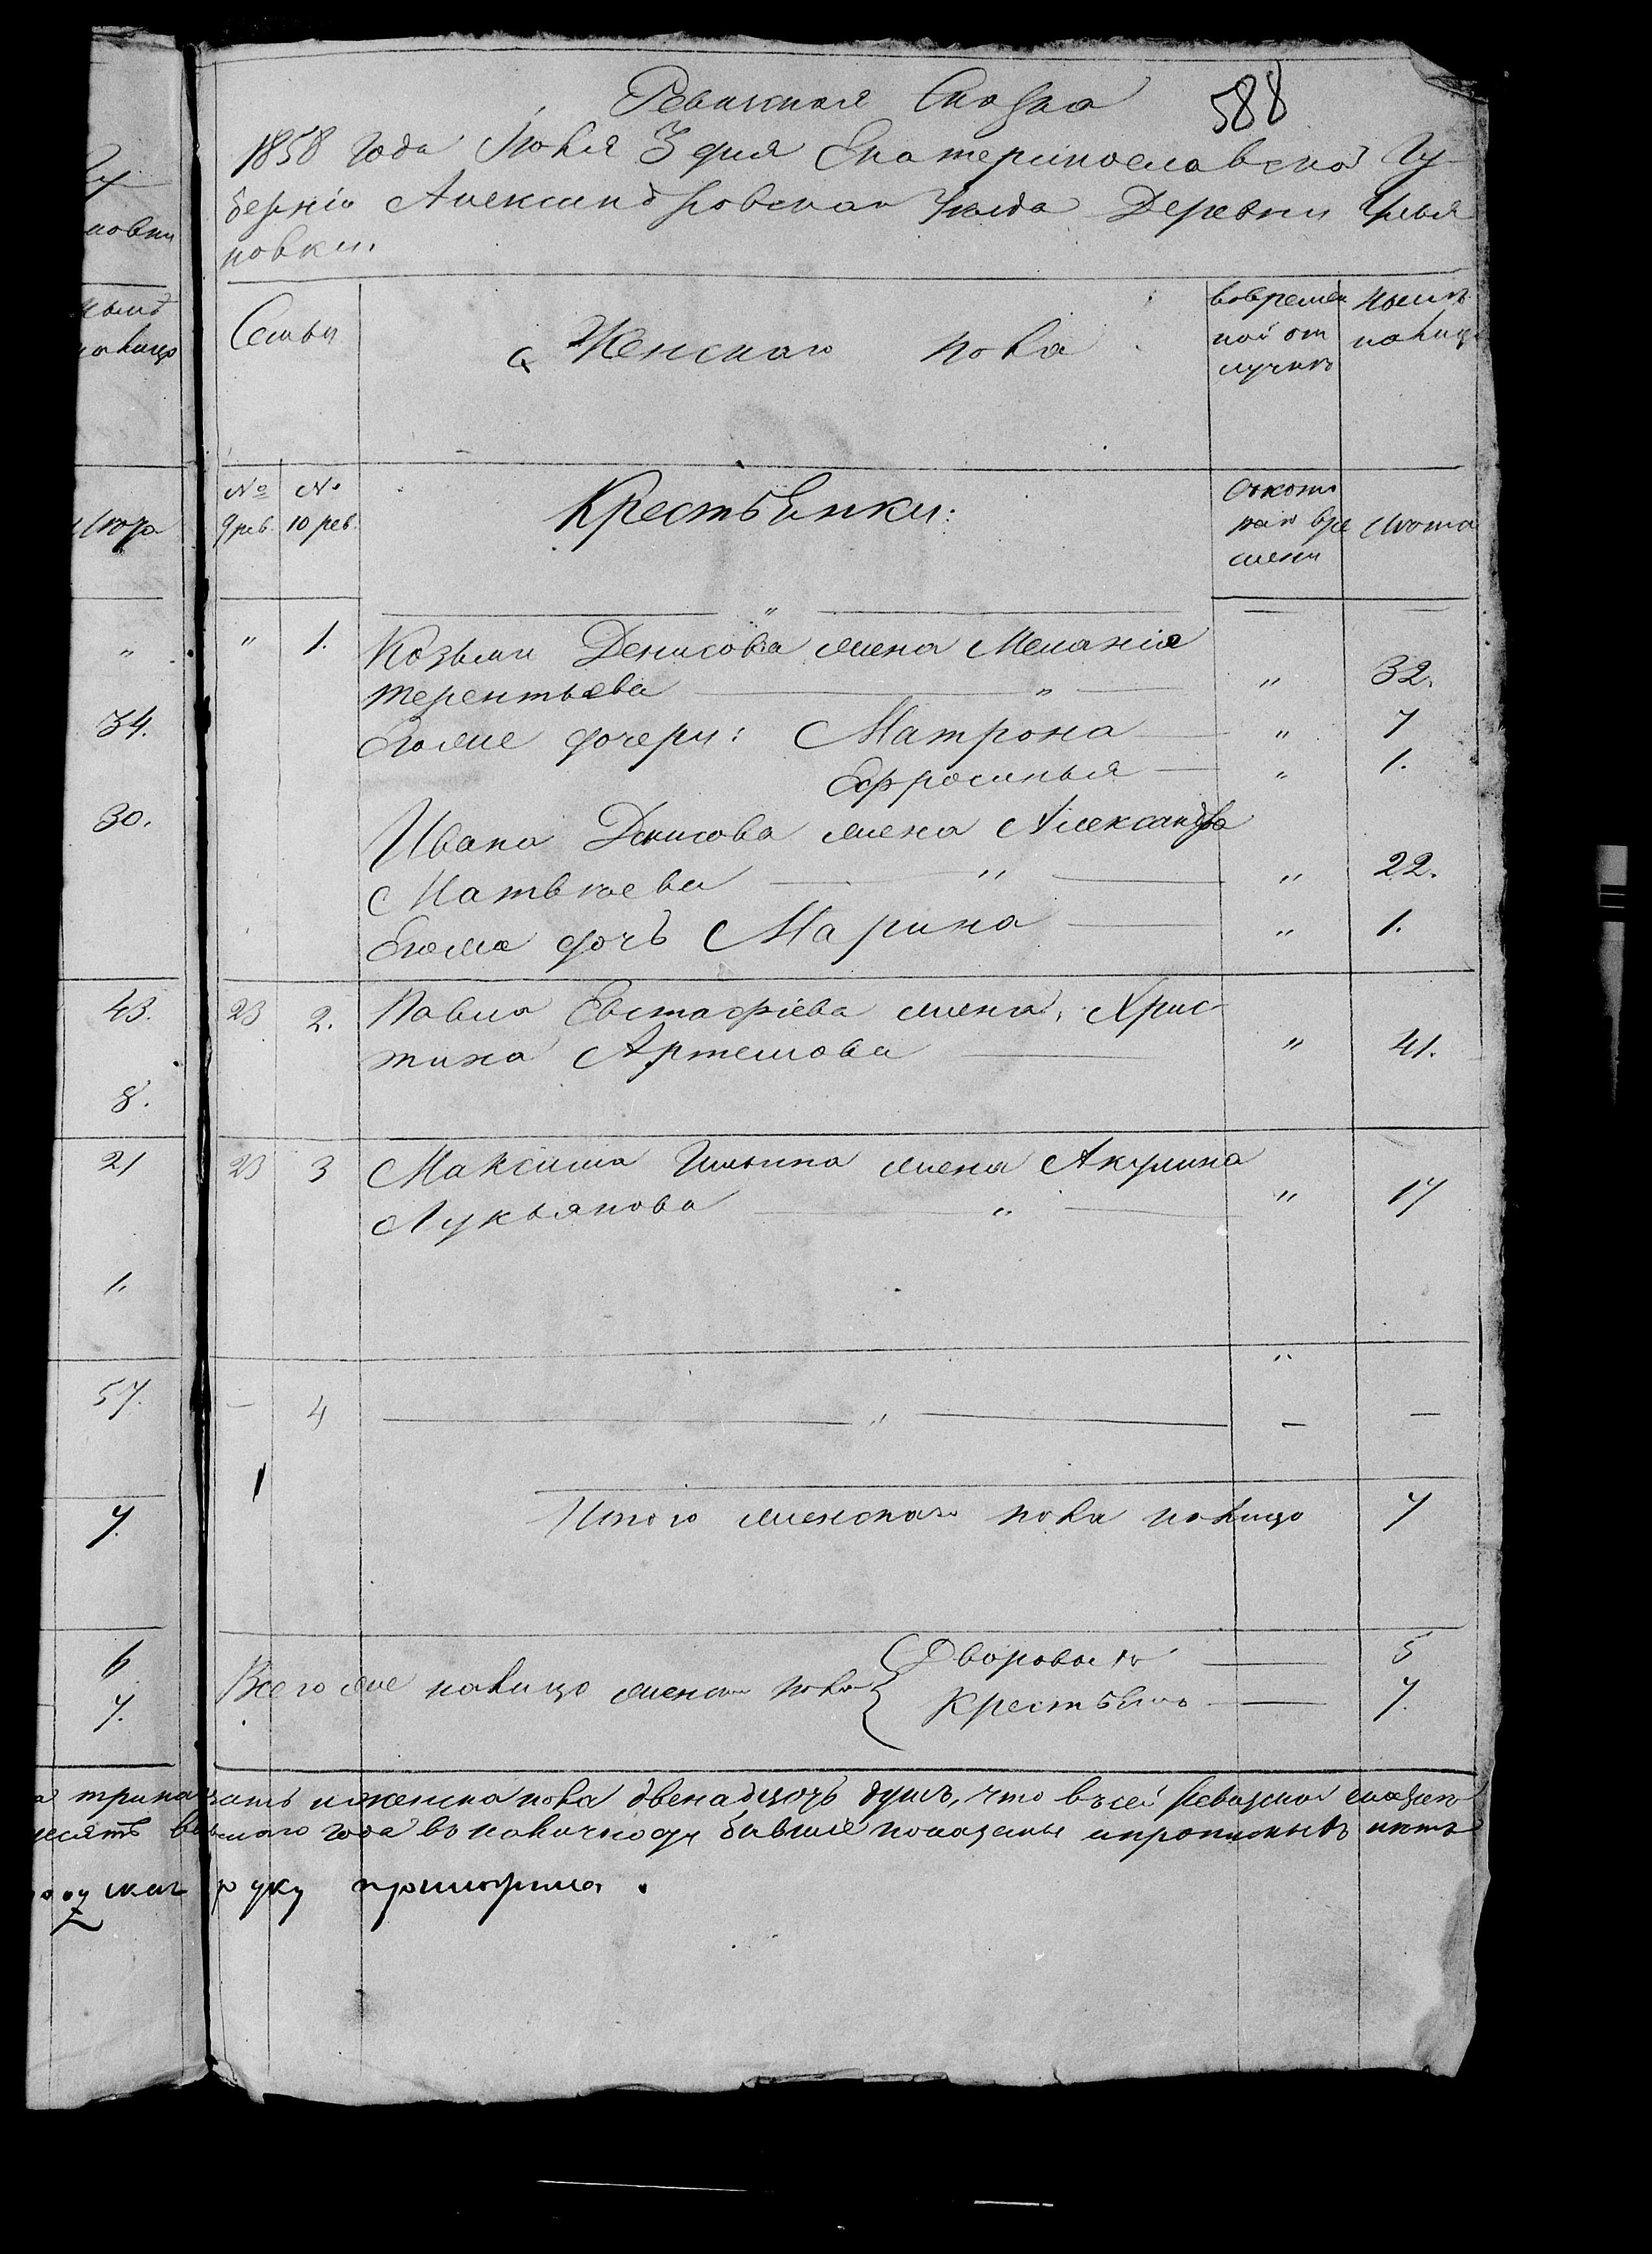 Ревизская Сказка
588
1858 года Июня 3 дня Екатеринославской Гу
берніи Александровскаго Уѣзда Деревни Улья
новки.
Семьи
Женскаго пола
вовремен
ной от
лучкѣ
Нынѣ
налицо
№ 9 рев.
№ 10 рев.
Крестьянки:
Съкото
раго вре
мени
Лѣта
" 1. Козьмы Денисова жена Меланія
Терентьева " " 32.
Егоже дочери: Матрона " 7
Ефросинья " 1.
Ивана Денисова жена Александра
Матвѣева " " 22.
Егоже дочь Марина " 1.
23 2. Павла Евстафіева жена, Хрис
тина Артемова " 41.
23 3 Максима Ильина жена Акулина
Лукьянова " " 17
"
4 "
Итого женскаго пола налицо 7
Всего же налицо женска пола
Дворовыхъ 5
Крестьянъ 7.
трина цать иженска пола двенадцать душъ, что въсей Ревизской сказке
десять вс
года въ наличноди бывшіе показаны ипрописныхъ нѣтъ
руку приложила.
новки
налицо
Лѣта
"
34.
30.
43.
8.
21
1.
57.
7.
6
7.